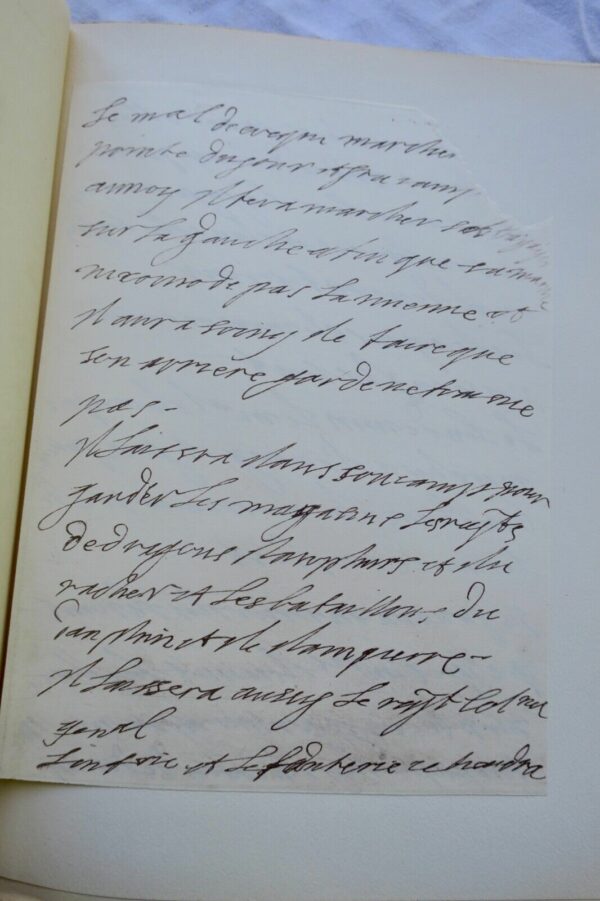 Le mal de crequi marchera
pointe du jour et sra camp
aunoy Il fera marcher
sur la gauche afin que sa marche
nincomode pas la mienne et
Il aura soing de faire que
son arrière garde ne traisne
pas -
Il laissera dans son camp pour
garder les magasins les regts
de dragons dauphins et du
et les bataillons du
dauphin et de
Il laissera aussy le regt colonel
genal
Linfrie et se tiendra